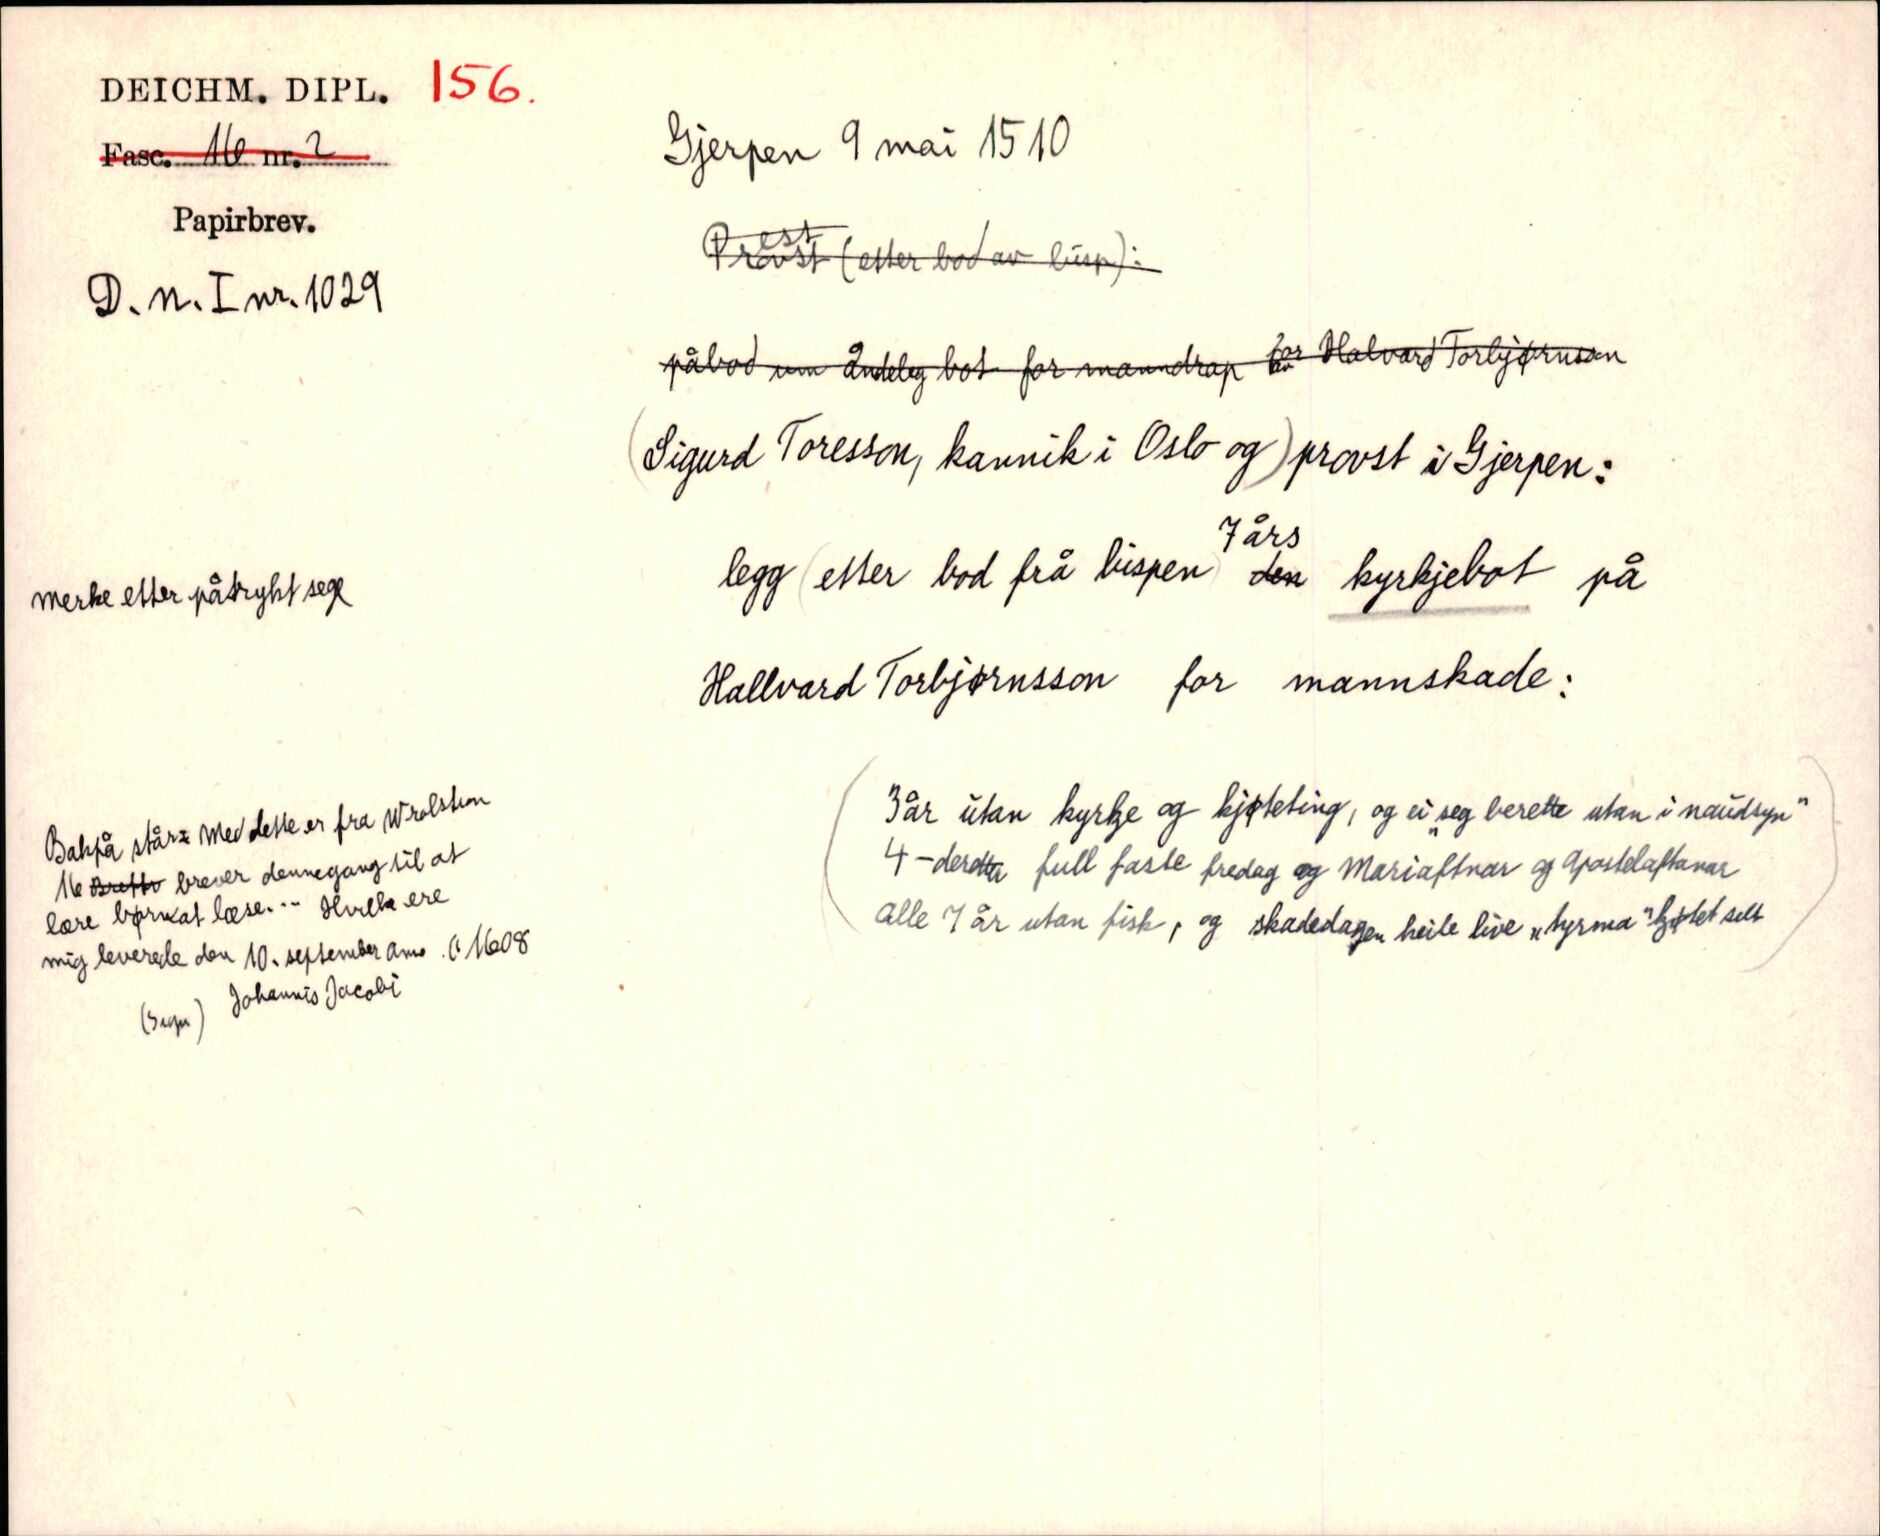 DEICHM. DIPL. 156.
Fasc. 16 nr. 2
Papirbrev.
D. N. I nr. 1029
merke etter påtrykt segl
Bakpå står: Med dette er fra Wrolstion
16 Breffv brever dennegang til at
lære børn at læse... Hvilke ere
mig leverede den 10. september Anno (: 1608
(Sign) Johannis Jacobi
Gjerpen 9 mai 1510
Provst est (etter bod av bisp):
påbod um åndeleg bot for manndrap for Halvard Torbjørnsson
(Sigurd Toresson, kannik i Oslo og) provst i Gjerpen:
legg (etter bod frå bispen) den 7 års kyrkjebot på
Hallvard Torbjørnsson for mannskade:
(3 år utan kyrkje og kjøteting, og ei "seg berette utan i naudsyn"
4 - deretter full faste fredag og Mariaftnar og Apostelaftanar
alle 7 år utan fisk, og skadedagen heile live "tyrma" kjøtet selt)